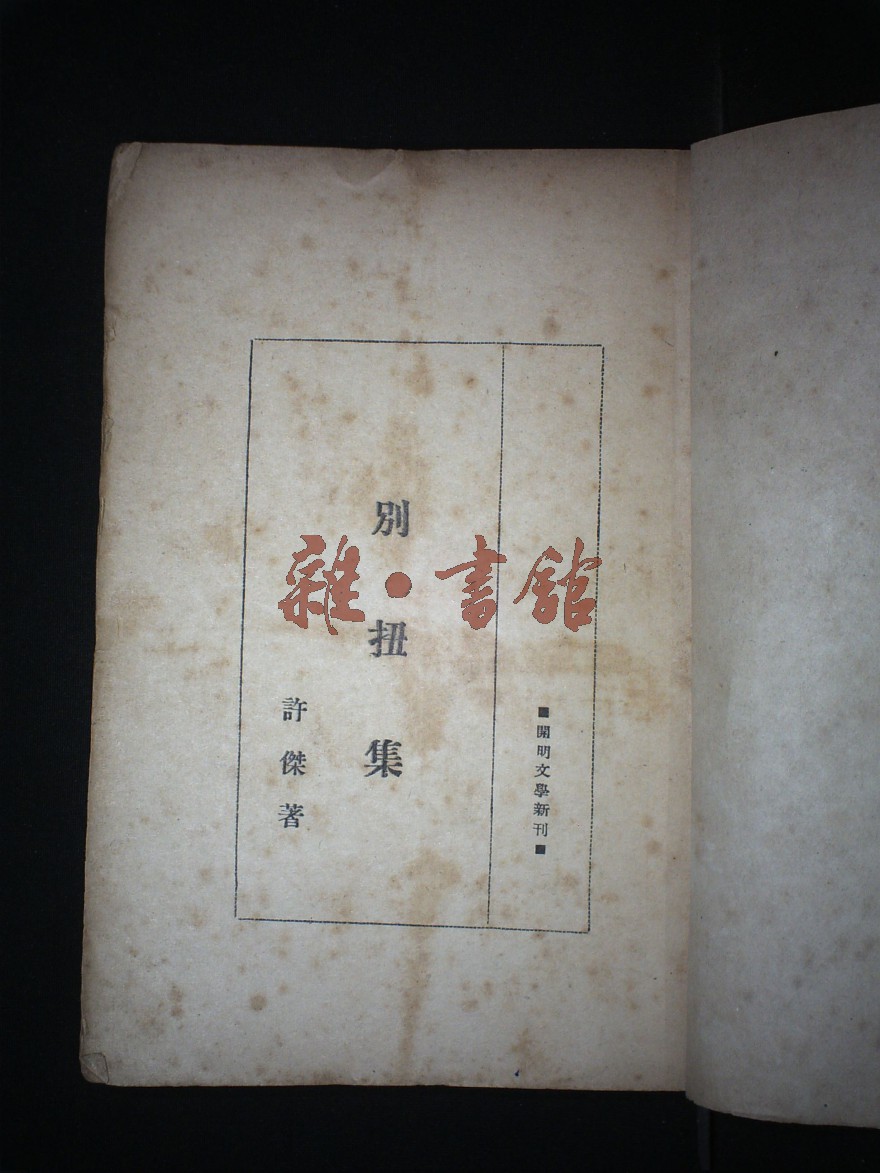 ■開明文學新刊■
別扭集
許傑著
雜·書館